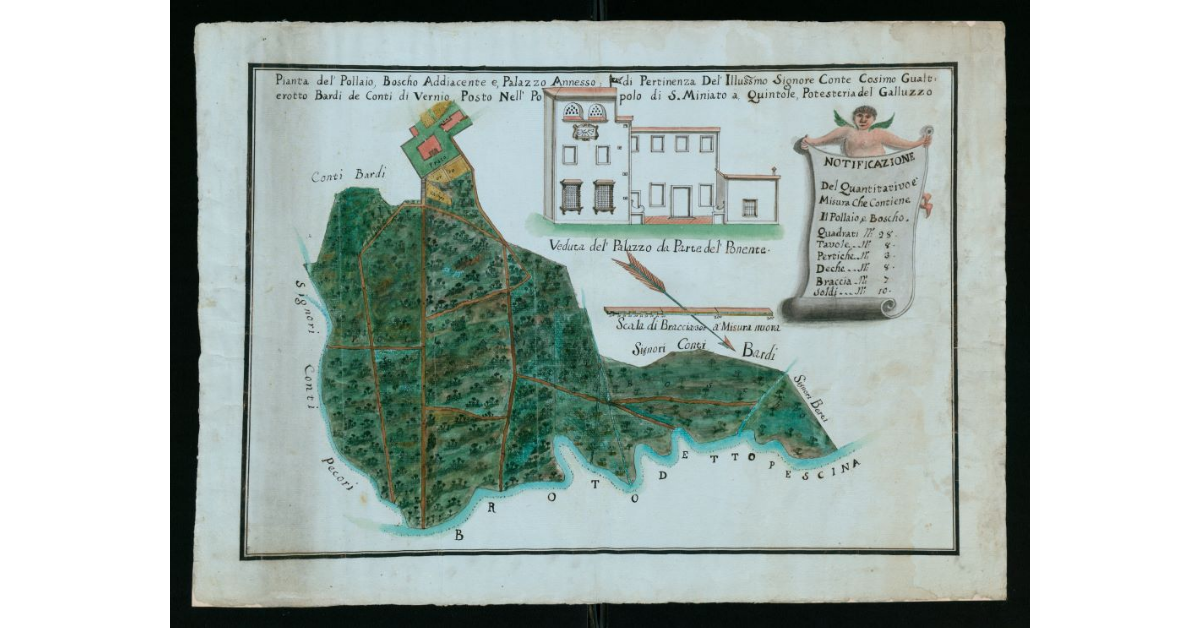 Pianta del' Pollaio, Boscho Addiacente e, Palazzo Annesso, di Pertinenza Del' Illussmo Signore Conte Cosimo Gualt:
erotto Bardi de Conti di Vernio, Posto Nell' Po polo di S. Miniato a Quintole, Potesteria del Galluzzo
Conti Bardi
NOTIFICAZIONE
Del Quantitativo è
Misura Che Contiene
Il Pollaio e Boscho.
Quadrati N° 98.
Tavole...N° 8.
Pertiche...N° 3.
Deche...N° 8.
Braccia...N° 7
Soldi...N° 10.
Veduta del' Palazzo da Parte del' Ponente.
Scala di Braccia a Misura nuova
Signori Conti Bardi
Signori Conti Pecori
Signori
BROTO DETTO PESCINA